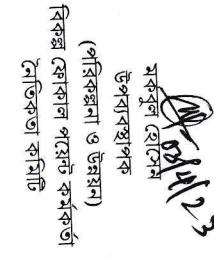 মকবুল হোসেন
উপব্যবস্থাপক
(পরিকল্পনা ও উন্নয়ন)
বিকল্প ফোকাল পয়েন্ট কর্মকর্তা
নৈতিকতা কমিটি